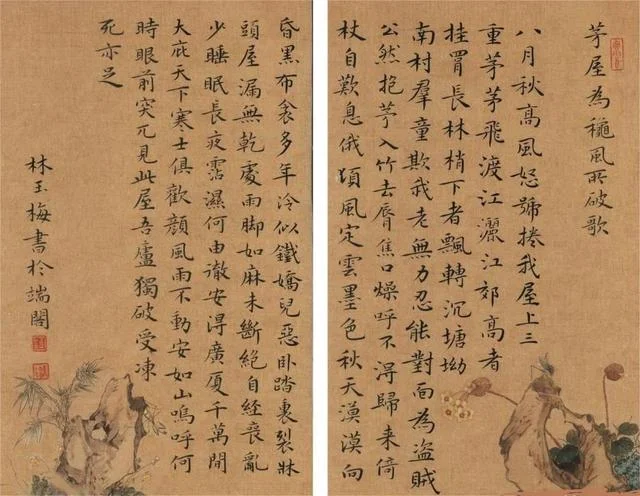 茅屋為穐風所破歌
八月秋髙風怒號捲我屋上三
重茅茅飛渡江灑江郊高者
挂罥長林梢下者飄轉沉塘坳
南村羣童欺我老無力忍能對面為盗賊
公然抱茅入竹去脣焦口燥呼不得歸来倚
杖自歎息俄頃風定雲墨色秋天漠漠向
昏黑布衾多年冷似鐵嬌兒惡卧踏裏裂牀
頭屋漏無乾處雨脚如麻未斷絕自經喪亂
少睡眠長夜霑濕何由徹安得廣厦千萬間
大庇天下寒士俱歡顔風雨不動安如山嗚呼何
時眼前突兀見此屋吾廬獨破受凍
死亦足
林玉梅書於端閣